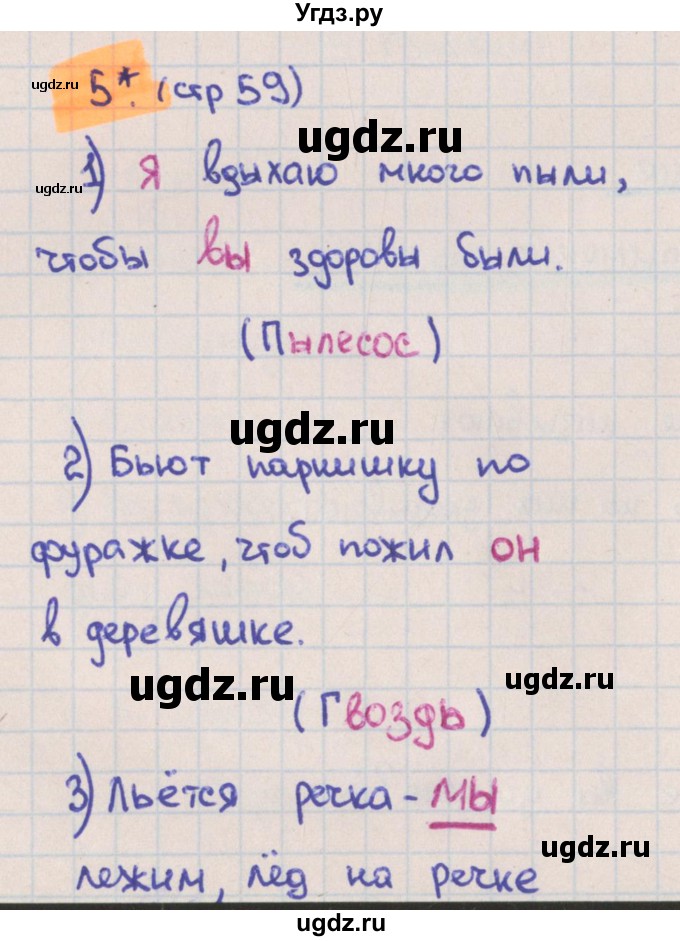 Угдз.ру
ugdz.ru
5*. (стр 59)
ugdz.ru
ugdz.ru
1) Я вдыхаю много пыли,
чтобы вы здоровы были.
(Пылесос)
ugdz.ru
2) Бьют парнишку по
фуражке, чтоб пожил он
в деревяшке.
ugdz.ru
ugdz.ru
(Гвоздь)
3) Льётся речка - мы
лежим, лёд на речке
ugdz.ru